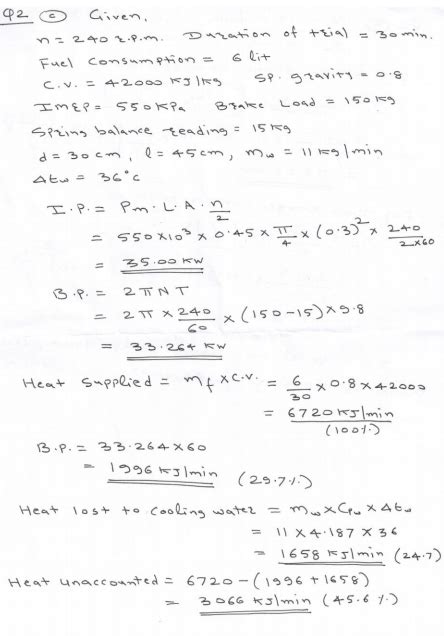 Q2 (c) Given,
n = 240 r.p.m. Duration of trial = 30 min.
Fuel Consumption = 6 lit
C.V. = 42000 KJ/kg SP. gravity = 0.8
IMEP = 550 KPa Brake Load = 150 kg
Spring balance reading = 15 kg
d = 30 cm, l = 45 cm, mw = 11 kg/min
Δtw = 36°C
I.P. = Pm · L · A · n/2
= 550×10³ × 0.45 × π/4 × (0.3)² × 240/2×60
= 35.00 KW
B.P. = 2πNT
= 2π × 240/60 × (150-15) × 9.8
= 33.264 KW
Heat Supplied = mf × C.V. = 6/30 × 0.8 × 42000
= 6720 KJ/min
(100%)
B.P. = 33.264 × 60
= 1996 KJ/min (29.7%)
Heat lost to cooling water = mw × Cpw × Δtw
= 11 × 4.187 × 36
= 1658 KJ/min (24.7)
Heat unaccounted = 6720 - (1996 + 1658)
= 3066 KJ/min (45.6 %)